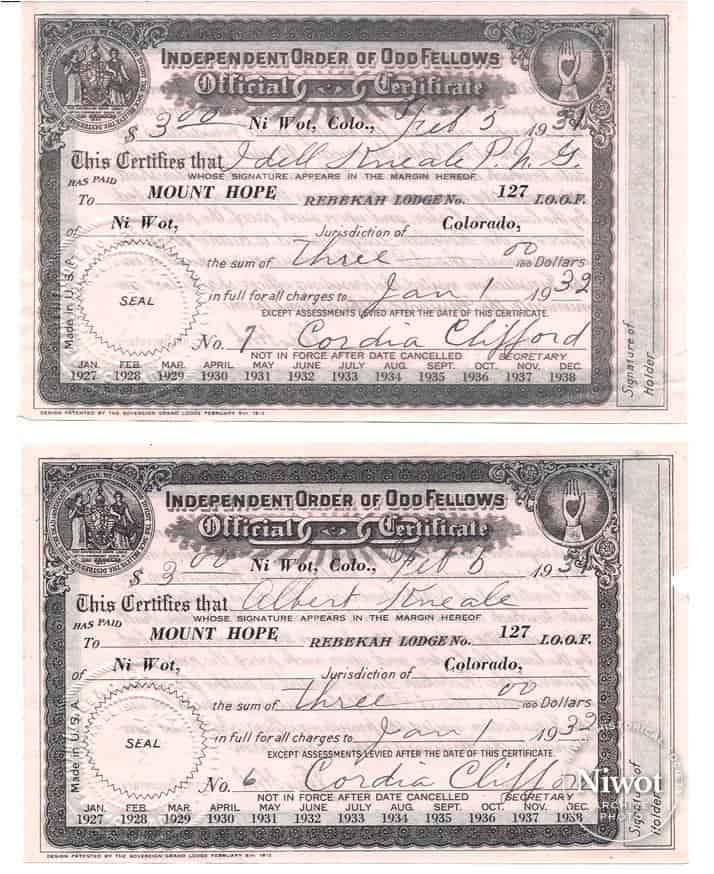 INDEPENDENT ORDER OF ODD FELLOWS
Official Certificate
$ 3 00 Ni Wot, Colo., Feb 5 1931
This Certifies that Idell Kneale P.N.G.
WHOSE SIGNATURE APPEARS IN THE MARGIN HEREOF
HAS PAID
To MOUNT HOPE REBEKAH LODGE No. 127 I.O.O.F.
of Ni Wot, Jurisdiction of Colorado,
the sum of Three 00/100 Dollars
SEAL
in full for all charges to Jan 1 1932
EXCEPT ASSESSMENTS LEVIED AFTER THE DATE OF THIS CERTIFICATE
No. 7 Cordia Clifford
NOT IN FORCE AFTER DATE CANCELLED SECRETARY
JAN. FEB. MAR. APRIL MAY JUNE JULY AUG. SEPT. OCT. NOV. DEC.
1927 1928 1929 1930 1931 1932 1933 1934 1935 1936 1937 1938
Made in U.S.A.
Signature of Holder
DESIGN PATENTED BY THE SOVEREIGN GRAND LODGE FEBRUARY
INDEPENDENT ORDER OF ODD FELLOWS
Official Certificate
$ 3 00 Ni Wot, Colo., Feb 6 1931
This Certifies that Albert Kneale
WHOSE SIGNATURE APPEARS IN THE MARGIN HEREOF
HAS PAID
To MOUNT HOPE REBEKAH LODGE No. 127 I.O.O.F.
of Ni Wot, Jurisdiction of Colorado,
the sum of Three 00/100 Dollars
SEAL
in full for all charges to Jan 1 1932
EXCEPT ASSESSMENTS LEVIED AFTER THE DATE OF THIS CERTIFICATE
No. 6 Cordia Clifford
NOT IN FORCE AFTER DATE CANCELLED SECRETARY
JAN. FEB. MAR. APRIL MAY JUNE JULY AUG. SEPT. OCT. NOV. DEC.
1927 1928 1929 1930 1931 1932 1933 1934 1935 1936 1937 1938
Made in U.S.A.
Signature of Holder
DESIGN PATENTED BY THE SOVEREIGN GRAND LODGE FEBRUARY
Niwot